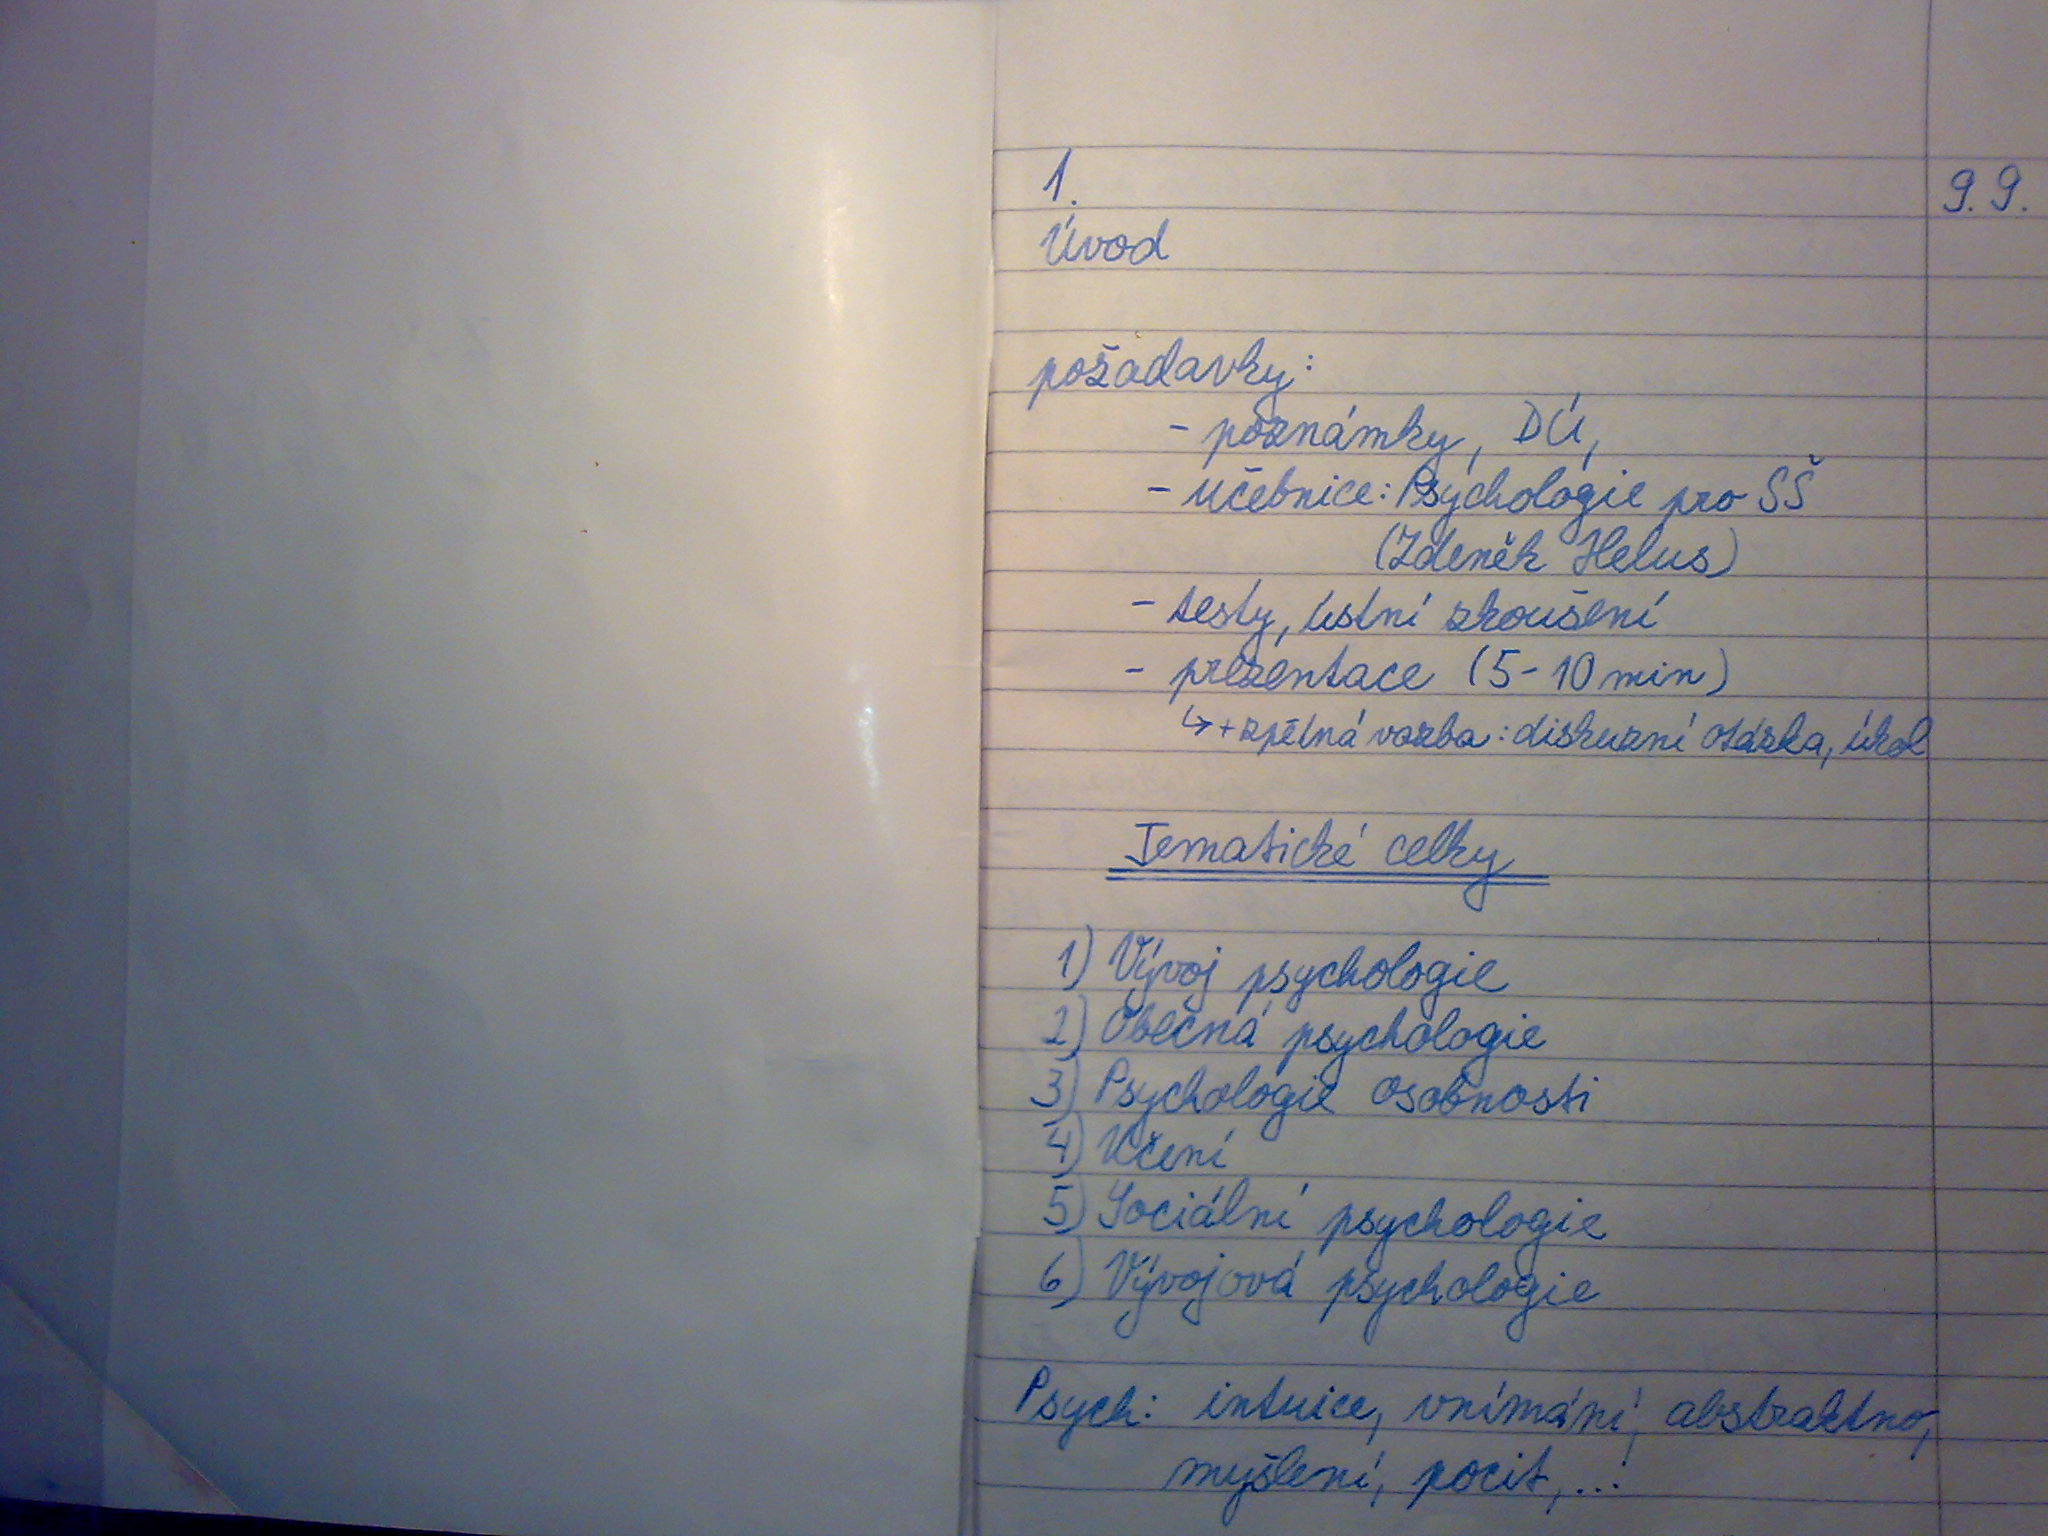 1.
9.9.
Úvod
požadavky:
- poznámky, DÚ,
- učebnice: Psychologie pro SŠ
(Zdeněk Helus)
- testy, ústní zkoušení
- prezentace (5-10 min)
↳ + zpětná vazba: diskuzní otázka, úkol
Tematické celky
1) Vývoj psychologie
2) Obecná psychologie
3) Psychologie osobnosti
4) Učení
5) Sociální psychologie
6) Vývojová psychologie
Psych: intuice, vnímání, abstraktno,
myšlení, pocit,...